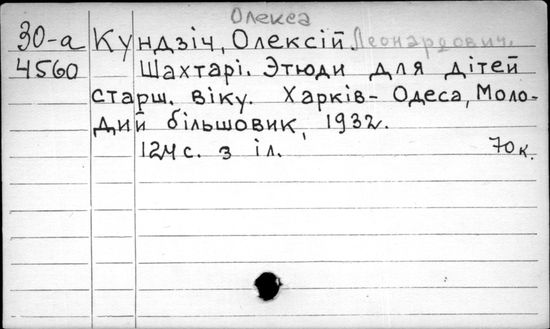 Олекса
30-а Кундзіч, Олексій Леонардович.
4560 Шахтарі. Этюди для дітей
старш. віку. Харків-Одеса, Моло-
дий більшовик, 1932.
124 с. з іл. 70 к.